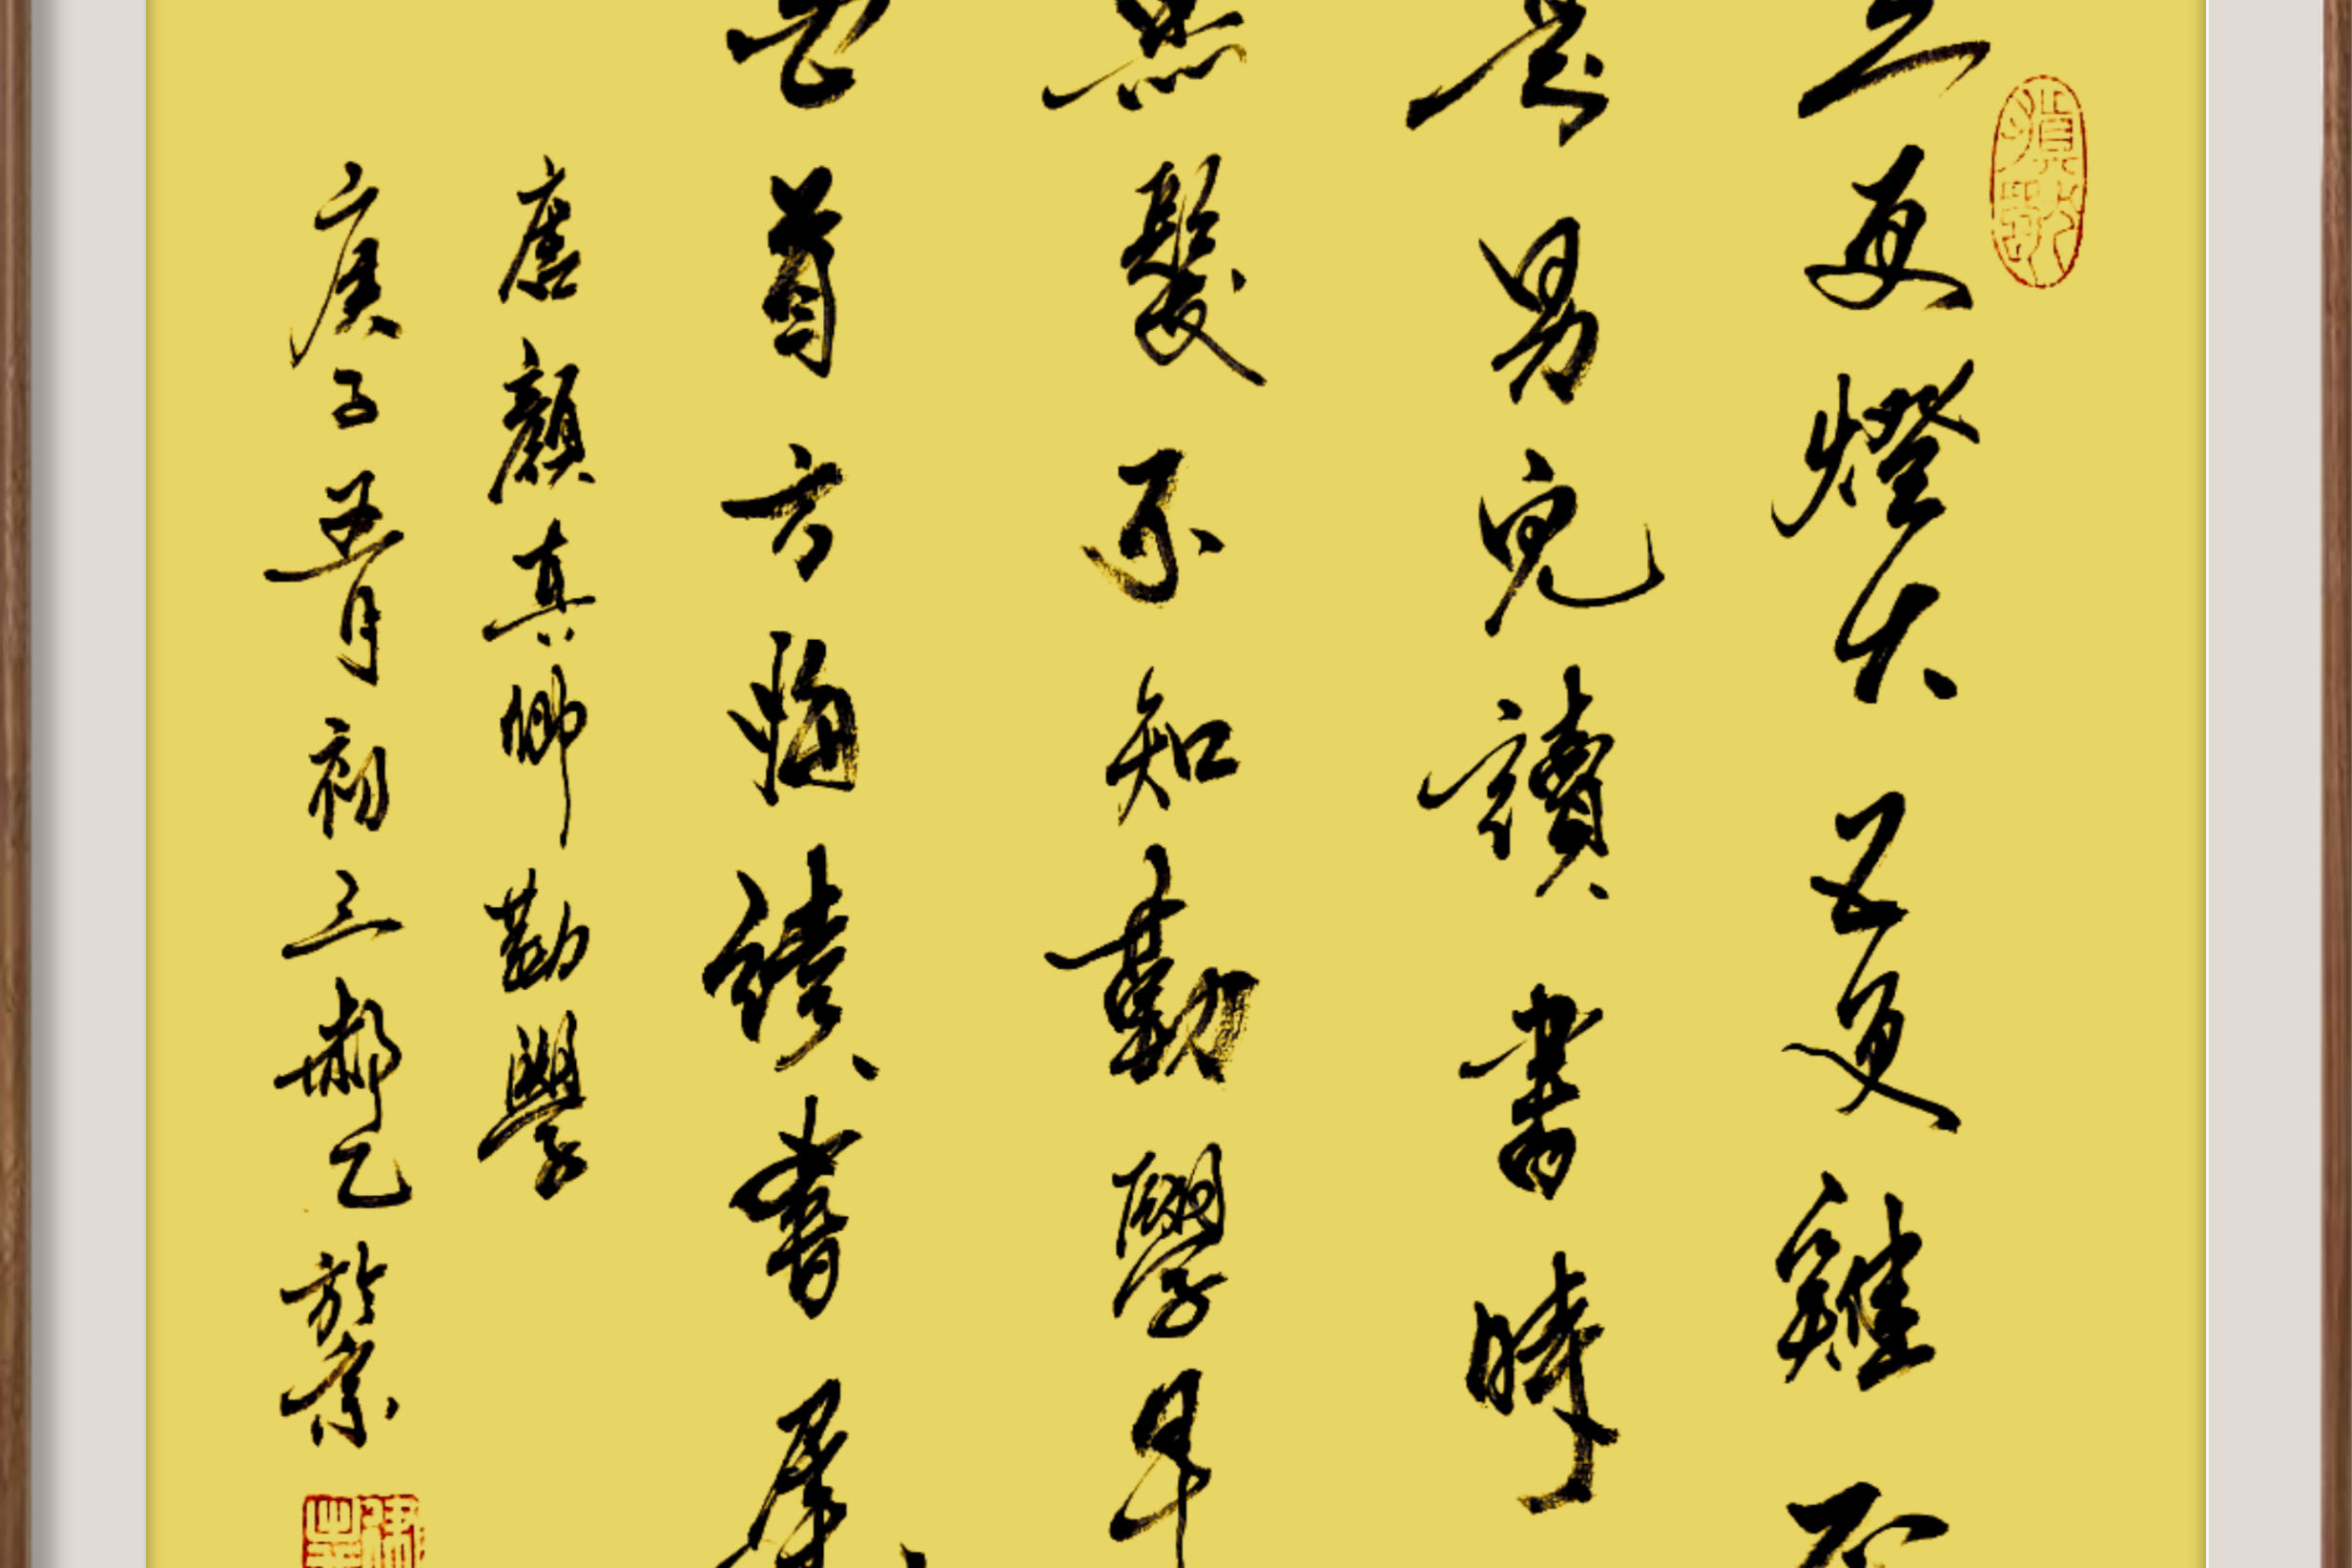 三更燈火五更雞正
是男兒讀書時
黑髮不知勤學早
白首方悔讀書遲
唐顏真卿勤學
庚子五月初三郝乙於京